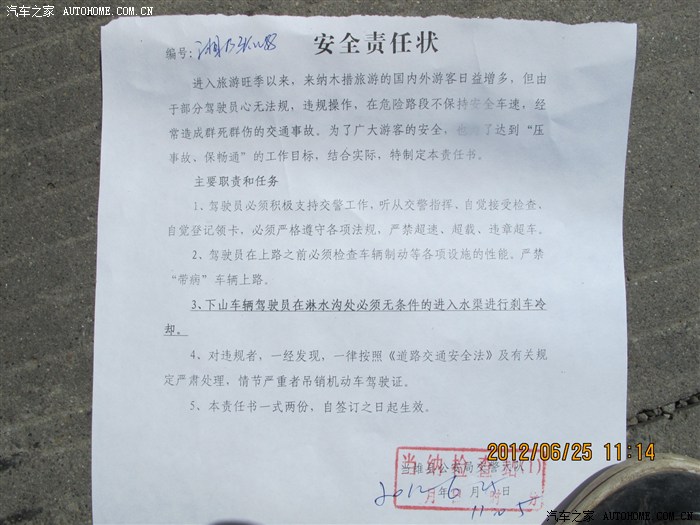 汽车之家 AUTOHOME.COM.CN
安全责任状
编号:湘
进入旅游旺季以来，来纳木措旅游的国内外游客日益增多，但由
于部分驾驶员心无法规，违规操作，在危险路段不保持安全车速，经
常造成群死群伤的交通事故。为了广大游客的安全，了达到“压
事故、保畅通”的工作目标，结合实际，特制定本责任书。
主要职责和任务
1、驾驶员必须积极支持交警工作，听从交警指挥、自觉接受检查、
自觉登记领卡，必须严格遵守各项法规，严禁超速、超载、违章超车。
2、驾驶员在上路之前必须检查车辆制动等各项设施的性能。严禁
“带病”车辆上路。
3、下山车辆驾驶员在淋水沟处必须无条件的进入水渠进行刹车冷
却。
4、对违规者，一经发现，一律按照《道路交通安全法》及有关规
定严肃处理，情节严重者吊销机动车驾驶证。
5、本责任书一式两份，自签订之日起生效。
当雄县公安局交警大队
当纳检查站(1)
2012年6月25日
月 日 时 分
11:05
2012/06/25 11:14
汽车之家 AUTOHOME.COM.CN